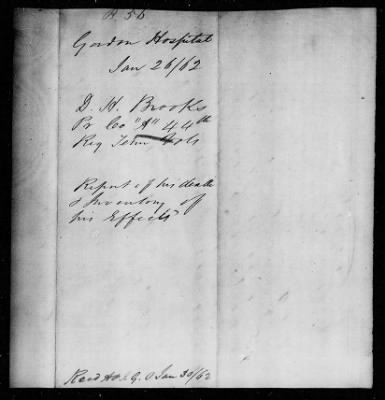 H 56
Gordon Hospital
Jan 26/62
D. H. Brooks
Pr Co "A" 44th
Reg Tenn Vols
Report of his death
& Inventory of
his Effects
Recd A & I. G. O Jan 30/62